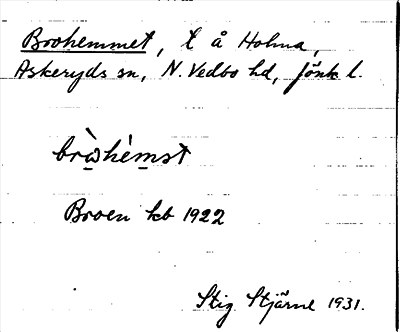 Brohemmet, t å Holma,
Askeryds sn, N. Vedbo hd, Jönk l.
brὼhèmət
Broen kb 1922
Stig Stjärne 1931.